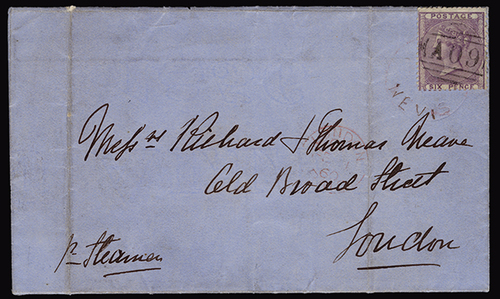 POSTAGE
A09
SIX PENCE
NEVIS
Messrs Richard & Thomas Neave
Old Broad Street
pr Steamer
London